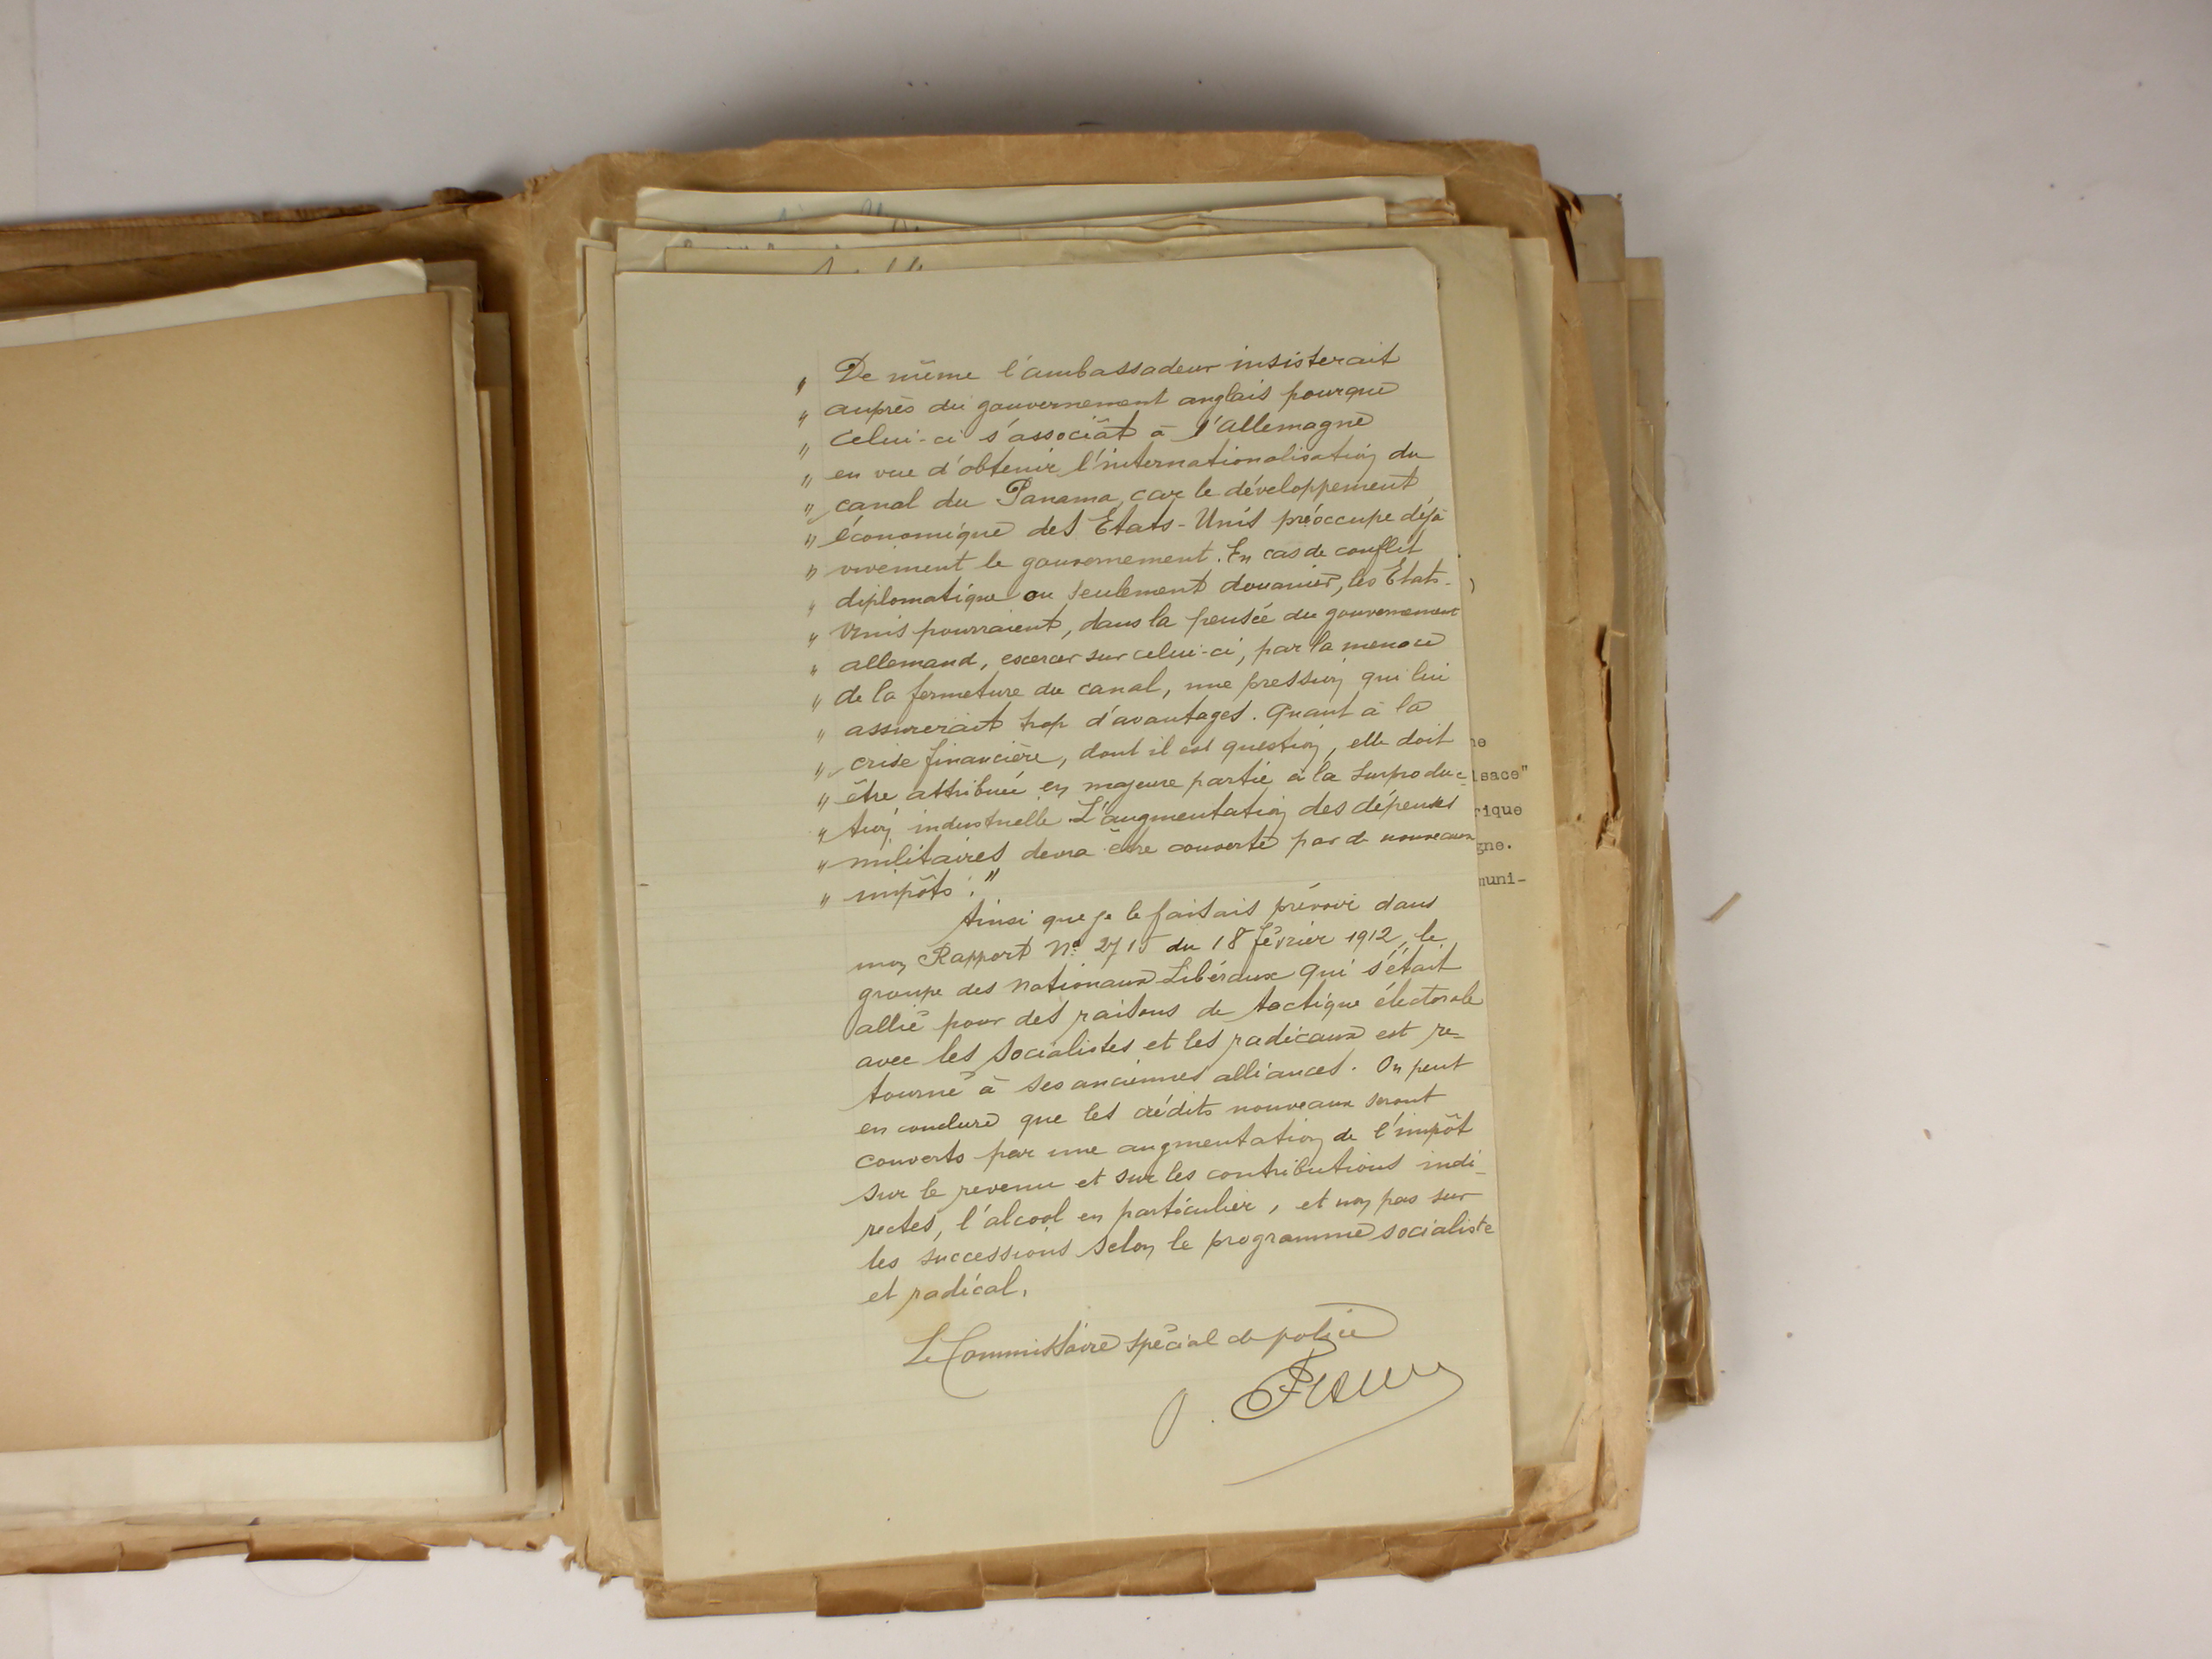 " De même l'ambassadeur insisterait
" auprès du gouvernement anglais pourque
" celui-ci s'associât à l'Allemagne
" en vue d'obtenir l'internationalisation du
" canal du Panama, car le développement
" économique des Etats-Unis préoccupe déjà
" vivement le gouvernement. En cas de conflit
" diplomatique ou seulement douanier, les Etats-
" Unis pourraient, dans la pensée du gouvernement
" allemand, exercer sur celui-ci, par la menace
" de la fermeture du canal, une pression qui lui
" assurerait trop d'avantages. Quant à la
" crise financière, dont il est question, elle doit
" être attribuée en majeure partie à la surproduc-
" tion industrielle. L'augmentation des dépenses
" militaires devra être couverte par de nouveaux
" impôts."
Ainsi que je le faisais prévoir dans
mon Rapport No 2715 du 18 février 1912, le
groupe des Nationaux Libéraux qui s'était
allié pour des raisons de tactique électorale
avec les socialistes et les radicaux est re-
tourné à ses anciennes alliances. On peut
en conclure que les crédits nouveaux seront
couverts par une augmentation de l'impôt
sur le revenu et sur les contributions indi-
rectes, l'alcool en particulier, et non pas sur
les successions selon le programme socialiste
et radical.
Le Commissaire spécial de police
ne
lsace"
rique
gne.
muni-